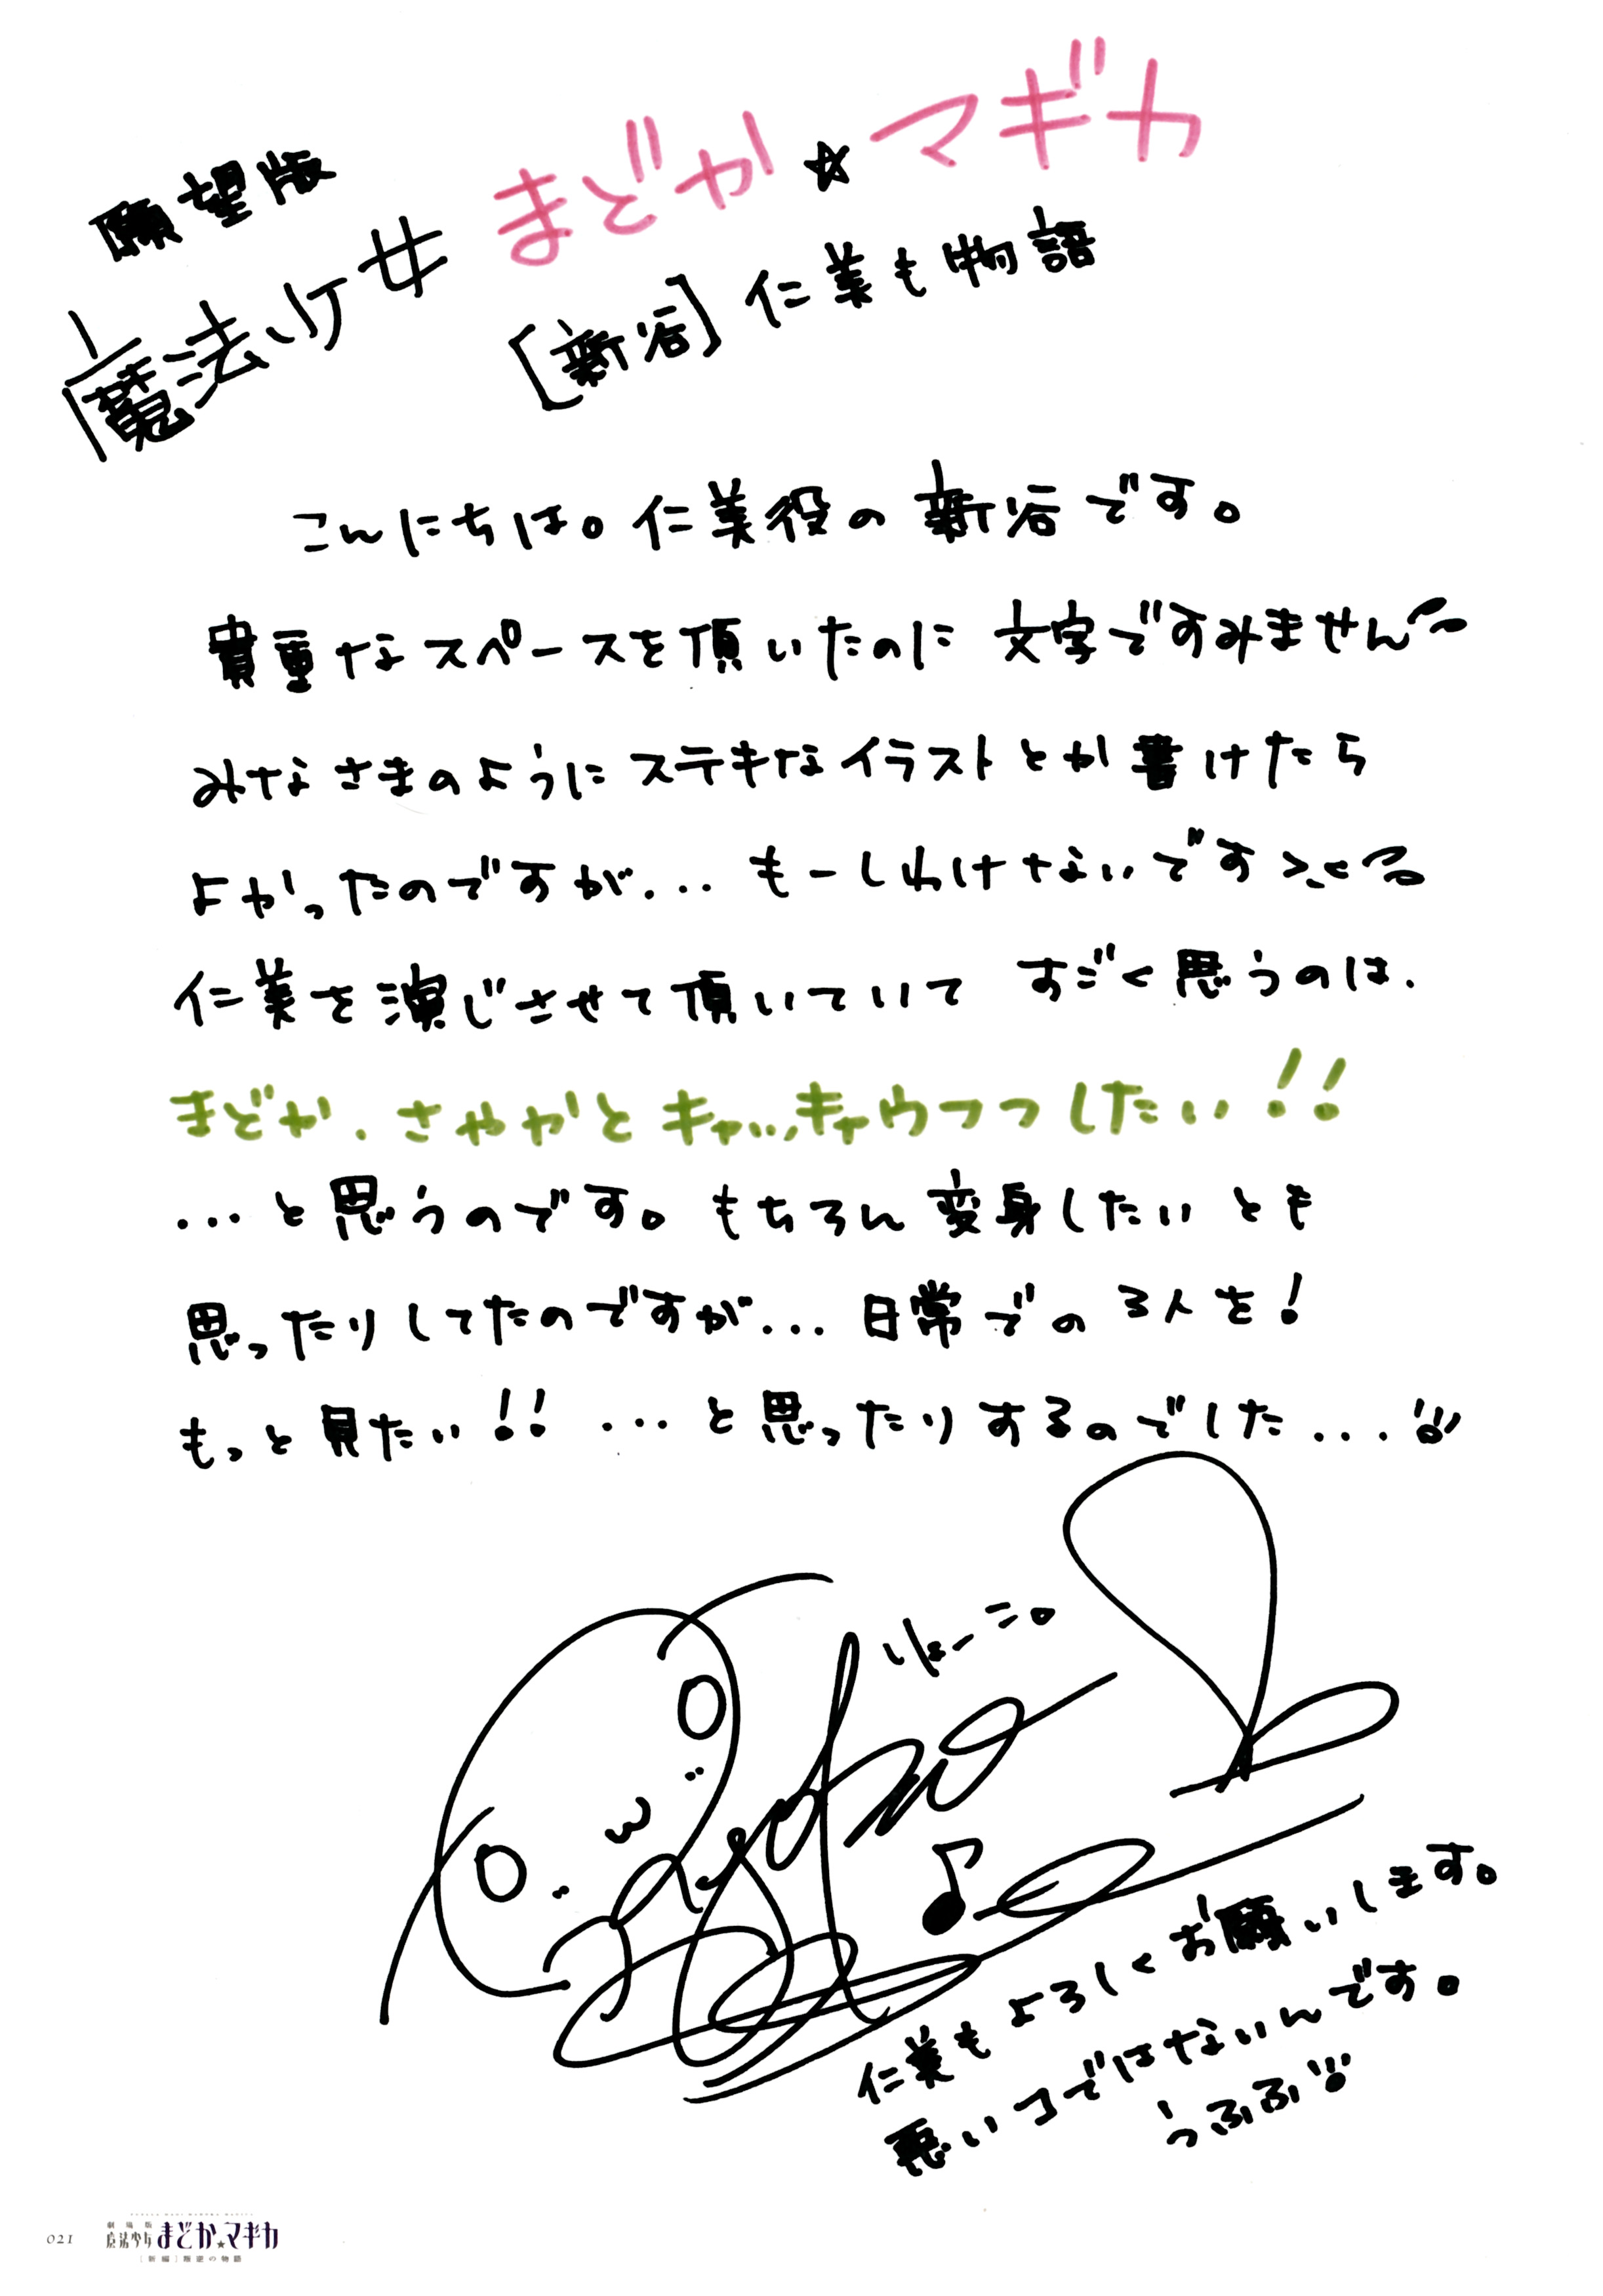 願望版
魔法少女まどか☆マギカ
[新谷]仁美も物語
こんにちは。仁美役の新谷です。
貴重なスペースを頂いたのに文字ですみません〜
みなさまのようにステキなイラストとか書けたら
よかったのですが... もーしわけないです>_<
仁美を演じさせて頂いていて すごく思うのは、
まどか、さやかとキャッキャウフフしたい!!
...と思うのです。もちろん変身したいとも
思ったりしてたのですが...日常での3人を!
もっと見たい!! ...と思ったりするのでした...
りょーこ。
仁美もよろしくお願いします。
悪いコではないんです。
うふふ
021
劇場版
魔法少女まどか☆マギカ
[新編]叛逆の物語